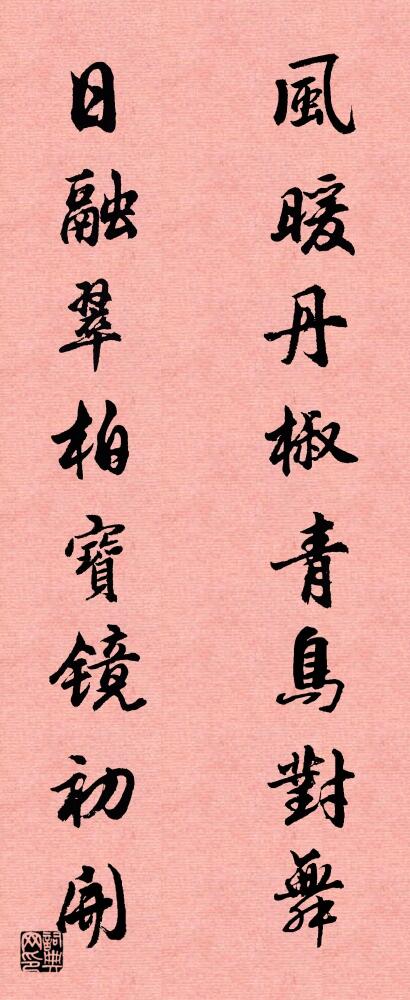 風暖丹椒青鳥對舞
日融翠柏寶鏡初開
詞典網印